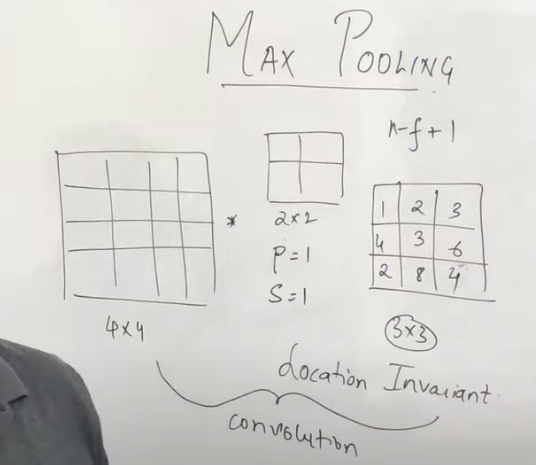 MAX POOLING
n-f+1
*
2x2
P=1
S=1
1 2 3
4 3 6
2 8 4
4x4
3x3
Location Invariant
convolution